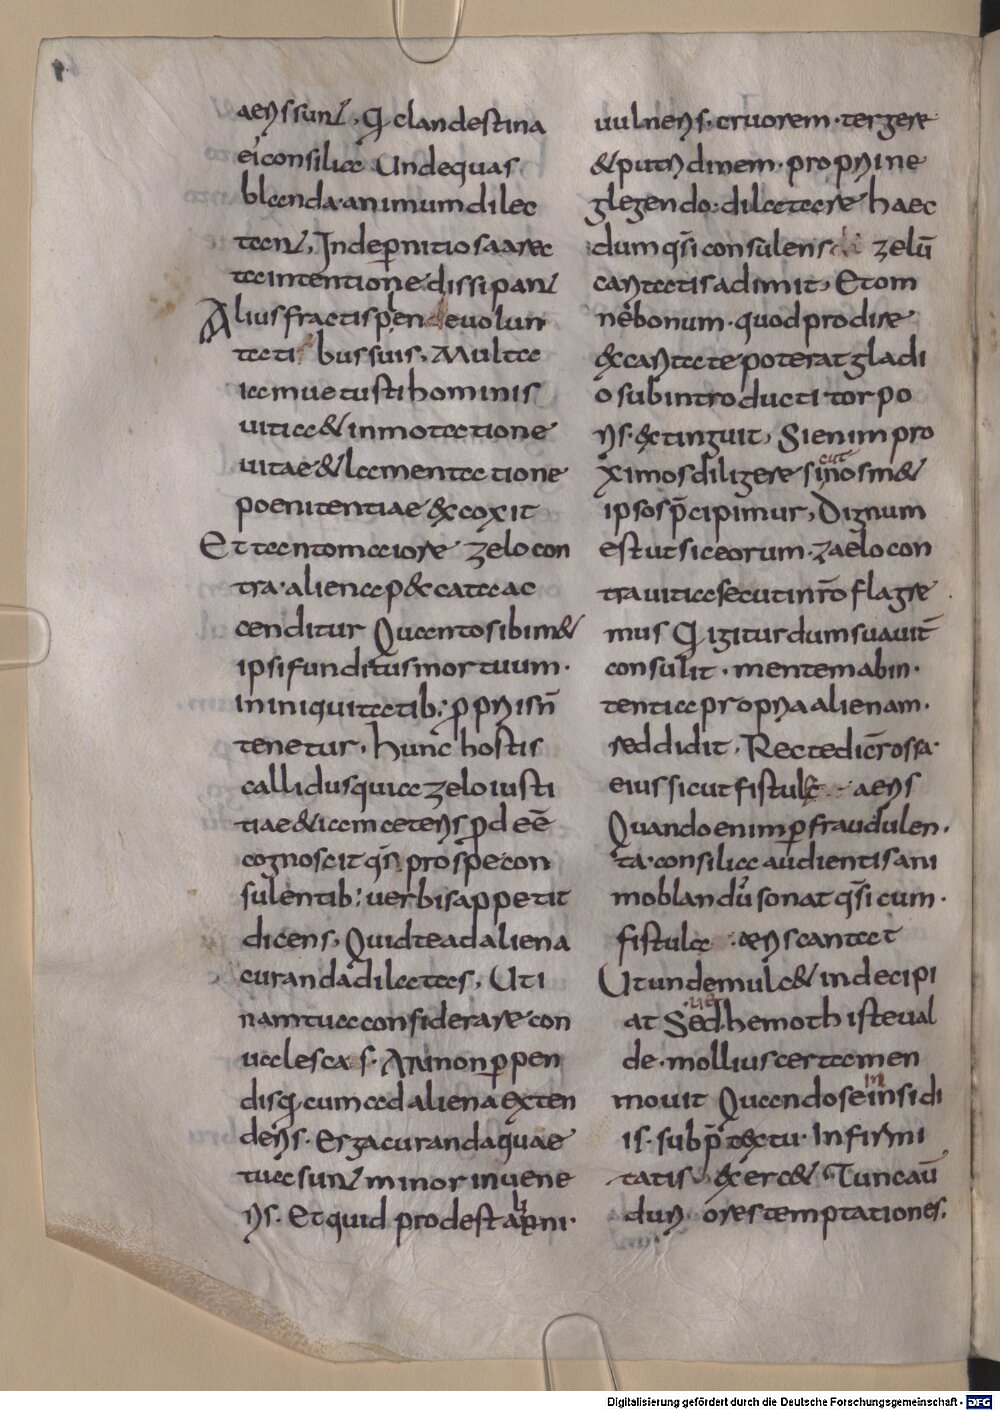 aeris sunt, Qui clandestina
ei consilia Unde quas
blanda animum dilec
tant, Inde pernitiosa arec
ta intentione dissipant
Alius fractis pene volun
tati bus suis, Multa
iam uetusti hominis
uitia & inmotatione
uitae & lamentatione
poenitentiae excoxit
Et tanto maiore zelo con
tra aliena peccata ac
cenditur Quanto sibim&
ipsi funditus mortuum
in iniquitatib; ppriis n̄
tenetur, hunc hostis
callidus quia zelo iusti
tiae & iam ceteris pdeē
cognoscit qsi prospe con
sulentib; uerbis appetit
dicens, Quid te ad aliena
curanda dilatas, Uti
nam tua considerare con
ualescas. An non ppen
dis q cum ad aliena exten
deris. Erga curanda quae
tua sunt minor inuene
ris. Et quid prodest apri
uulneris cruorem tergere
& putridinem propri ne
glegendo dilatare haec
dum qsi consulens zelū
caritatis adimit, Et om
ne bonum quod prodire
ex caritate poterat gladi
o subintroducti torpo
ris extinguit, Si enim pro
ximos diligere sicut nosm&
ipsos p̄cipimur, Dignum
est ut sic eorum zaelo con
tra uitia secut in r̄o flagre
mus Q igitur dum suauit̄
consulit mentem ab in
tentia propria alienam
reddidit, Recte dic̄r ossa
eius sicut fistula aeris
Quando enim p fraudulen
ta consilia audientis ani
mo blandū sonat qsi cum
fistula aeris cantat
Ut unde mulc& inde cipi
at Sed uehemoth iste ual
de mollius certamen
mouit Quando se in insidi
is sub p̄textu Infirmi
tatis exerc& Tunc aū
duriores temptationes